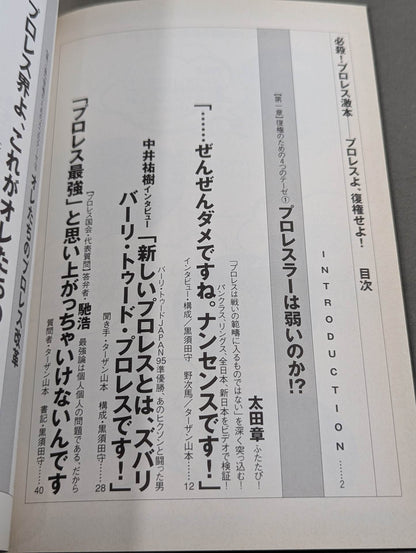 必殺!プロレス激本——プロレスよ、復権せよ! 目次
INTRODUCTION……2
【第一章】復権のための4つのテーゼ① プロレスラーは弱いのか!?
太田章 ふたたび!
「プロレスは戦いの範疇に入るものではない」を深く突っ込む!
パンクラス、リングス、全日本、新日本をビデオで検証!
「……ぜんぜんダメですね。ナンセンスです!」
インタビュー・構成/黒須田守 野次馬/ターザン山本……12
バーリ・トゥードJAPAN95準優勝、あのヒクソンと闘った男
中井祐樹インタビュー「新しいプロレスとは、ズバリ
バーリ・トゥード・プロレスです!」
聞き手・ターザン山本 構成・黒須田守……28
【プロレス国会・代表質問】答弁者・馳浩 最強論は個人個人の問題である、だから
「『プロレス最強』と思い上がっちゃいけないんです
質問者・ターザン山本 書記・黒須田守……40
オレたちのプロレス改革
プロレス界よ、これがオレたちの